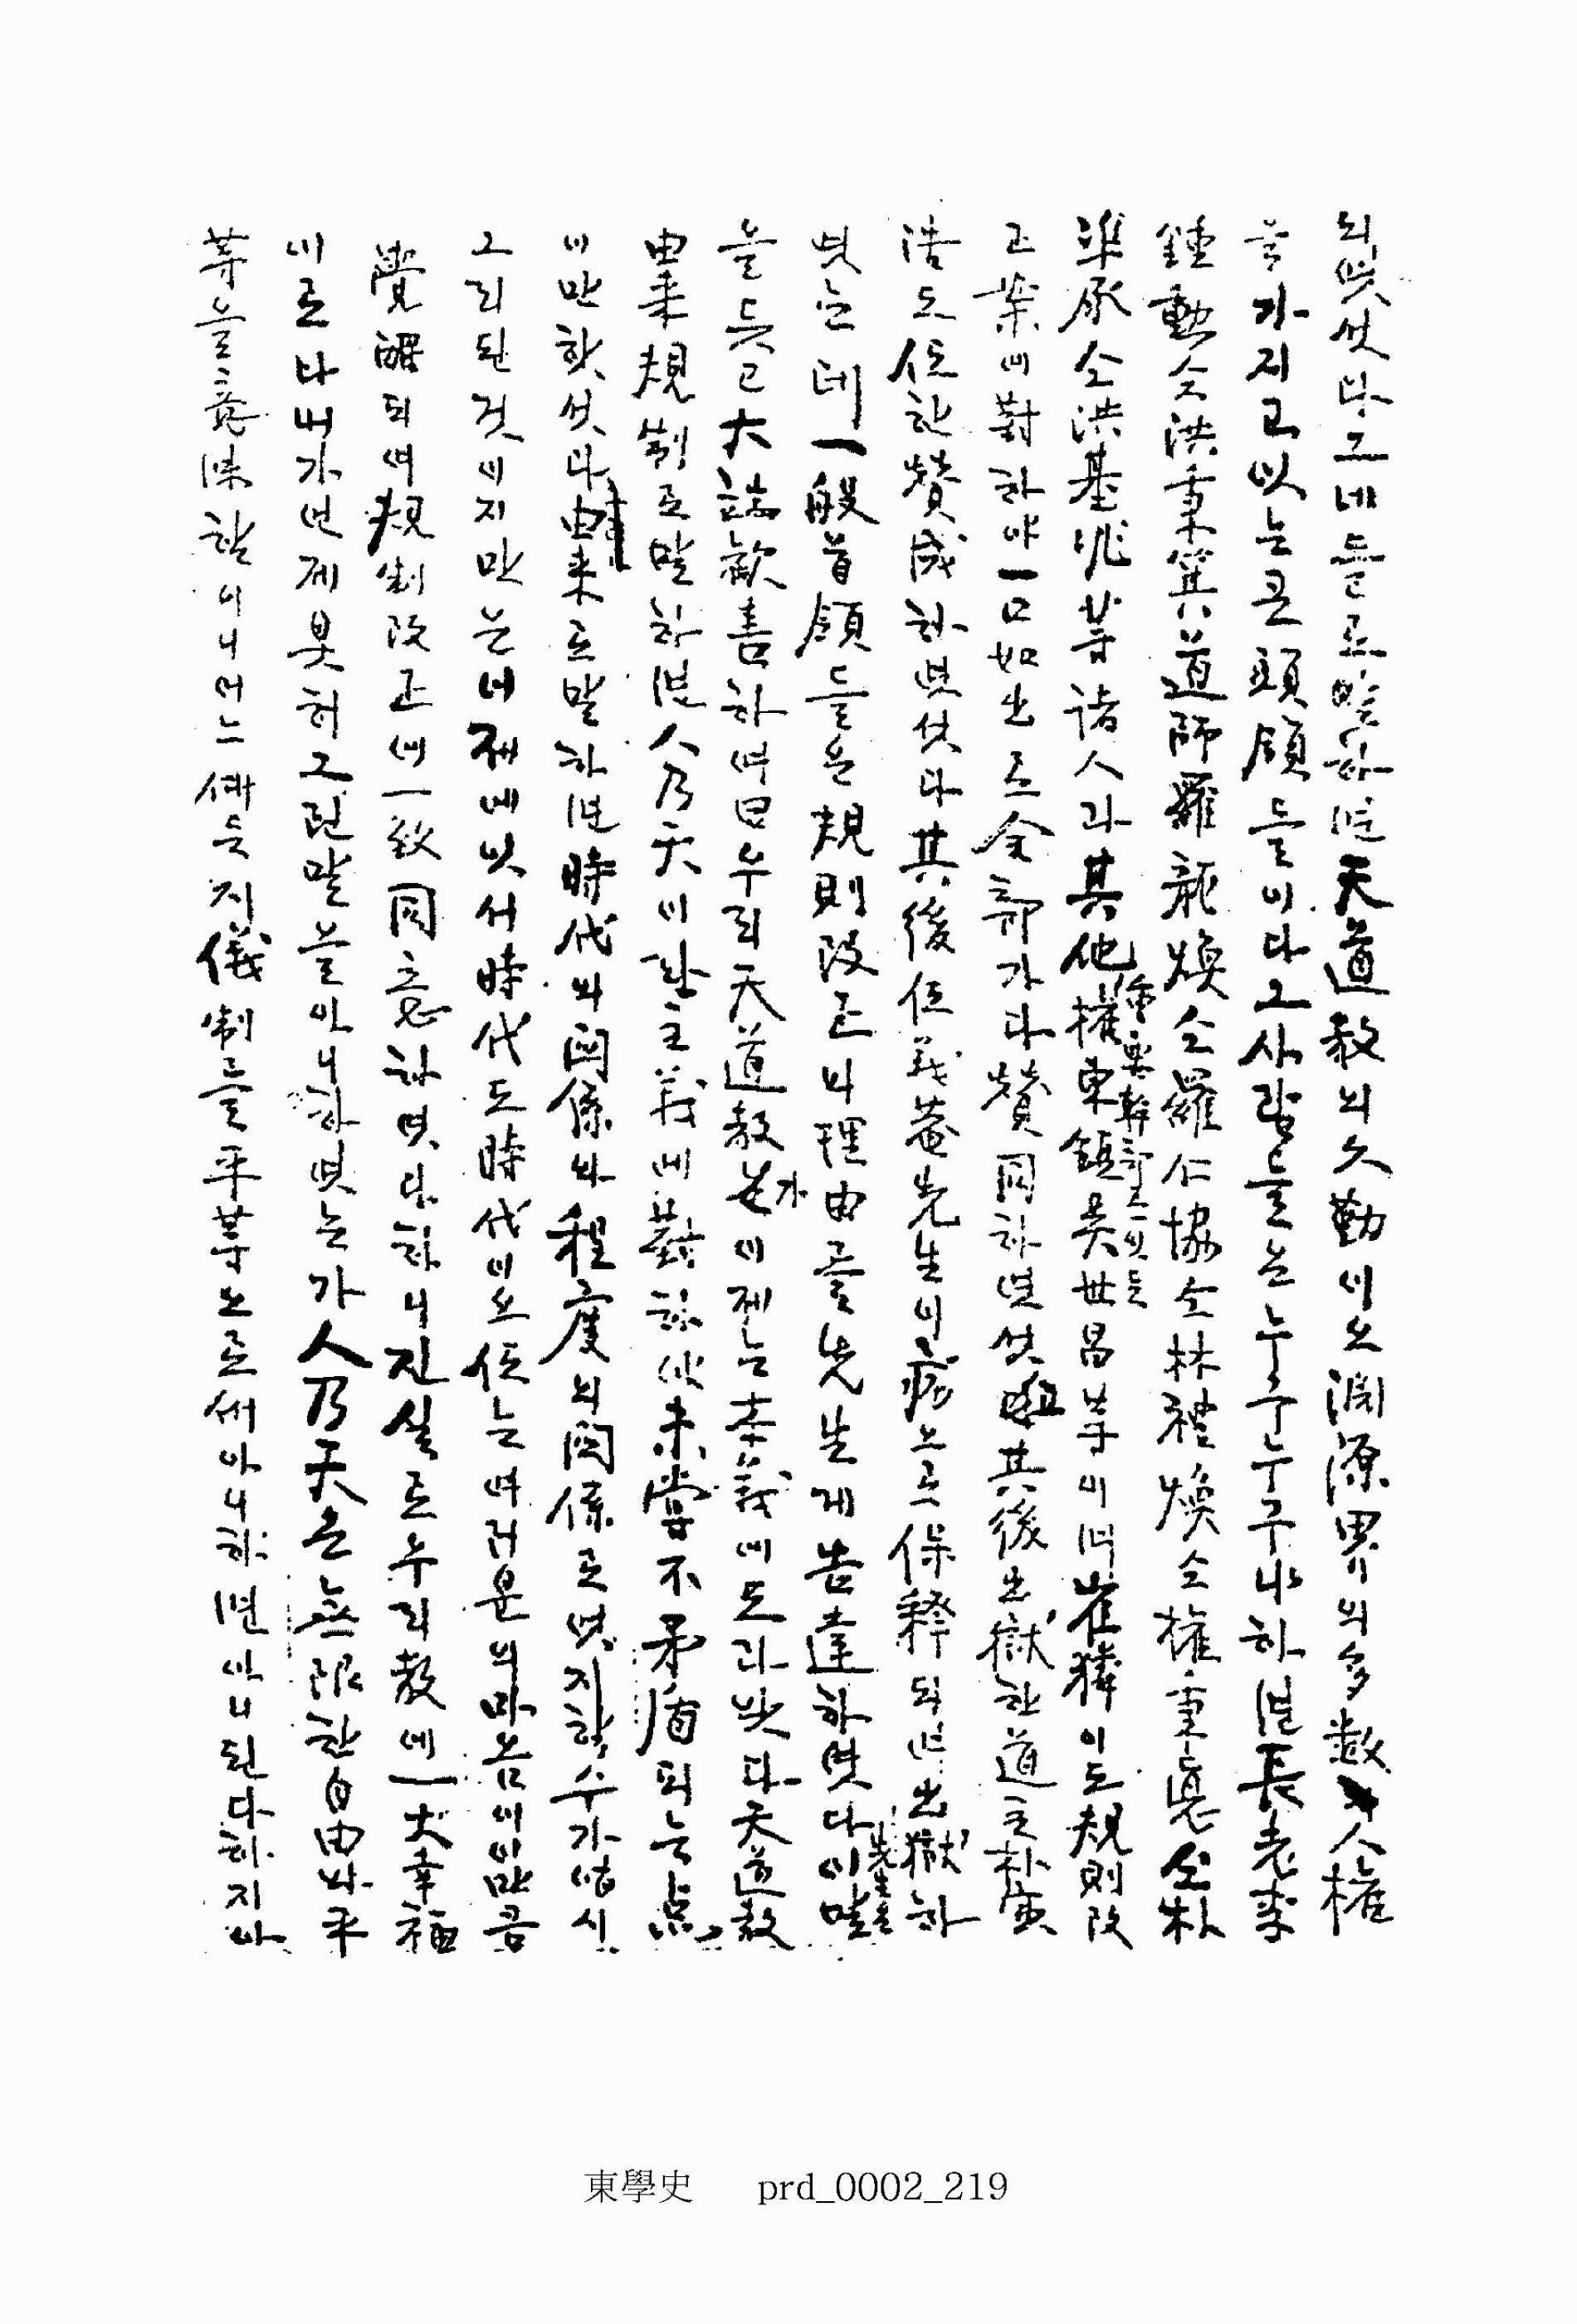 되엿섯다 그네들로 말하면 天道敎의 久勤이오 淵源界의 多數人權
을 가지고 잇는 큰 頭領들이다 그 사람들는 누구누구냐 하면 長老李
鍾勳 仝洪秉箕 道師羅龍煥 仝羅仁協 仝林禮煥 仝權秉悳 仝朴
準承 仝洪基兆 等 諸人과 其他 權東鎭 吳世昌 等이며 崔獜이도 規則改
重要幹部로 잇든
正案에 對하야 一口如出로 全部가 다 贊同하엿섯 其後 出獄한 道主 朴寅
浩도 亦한 贊成하엿섯다 其後 亦 義菴先生이 病으로 保釋되며 出獄하
엿는데 一般 首領들은 規則改正의 理由를 先生게 告達하엿다 이 말
先生은
을 듯고 大端歡喜하며 曰 우리 天道敎가 이제는 主義에 도라왓다 天道敎
由來 規制로 말하면 人乃天이란 主義에 對하야 未嘗不 矛盾되는 点
이 만핫섯다 由來로 말하면 時代의 關係와 程度의 關係로 엿지할 수가 업시
그리된 것이지만은 이제에 잇서 時代도 時代이오 亦는 여러분의 마음이 이만큼
覺醒되여 規制改正에 一致同意하엿다 하니 진실로 우리 敎에 一大幸福
이로다 내가 언제붓허 그런 말을 아니하엿는가 人乃天은 無限한 自由와 平
等을 意味함이니 어느 때든지 儀制를 平等으로 세 아니하면 아니된다 하지 아